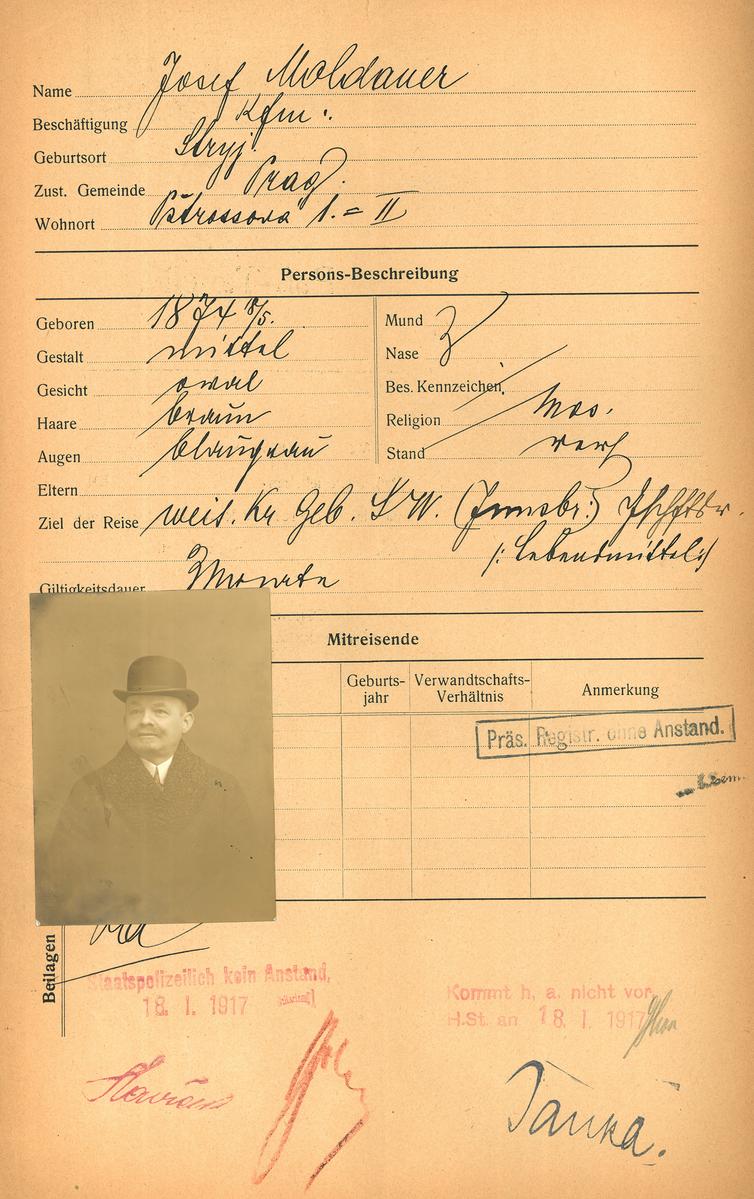 Name Josef Moldauer
Beschäftigung Kfm.
Geburtsort Stryj.
Zust. Gemeinde Prag.
Wohnort Pštrossova 1. = II
Persons-Beschreibung
Geboren 1874 18/5.
Gestalt mittel
Gesicht oval
Haare braun
Augen blaugrau
Mund
Nase
Bes. Kennzeichen
Religion mos.
Stand verh
Eltern
Ziel der Reise weit. Kr Geb. S W. (Innsbr:)
/: Lebensmittel:/
Giltigkeitsdauer 3 Monate
Mitreisende
Geburts-jahr
Verwandtschafts-Verhältnis
Anmerkung
Präs. Registr. ohne Anstand.
Beilagen
Staatspolizeilich kein Anstand,
18. I. 1917
Kommt h. a. nicht vor,
H.St. an 18. I. 1917